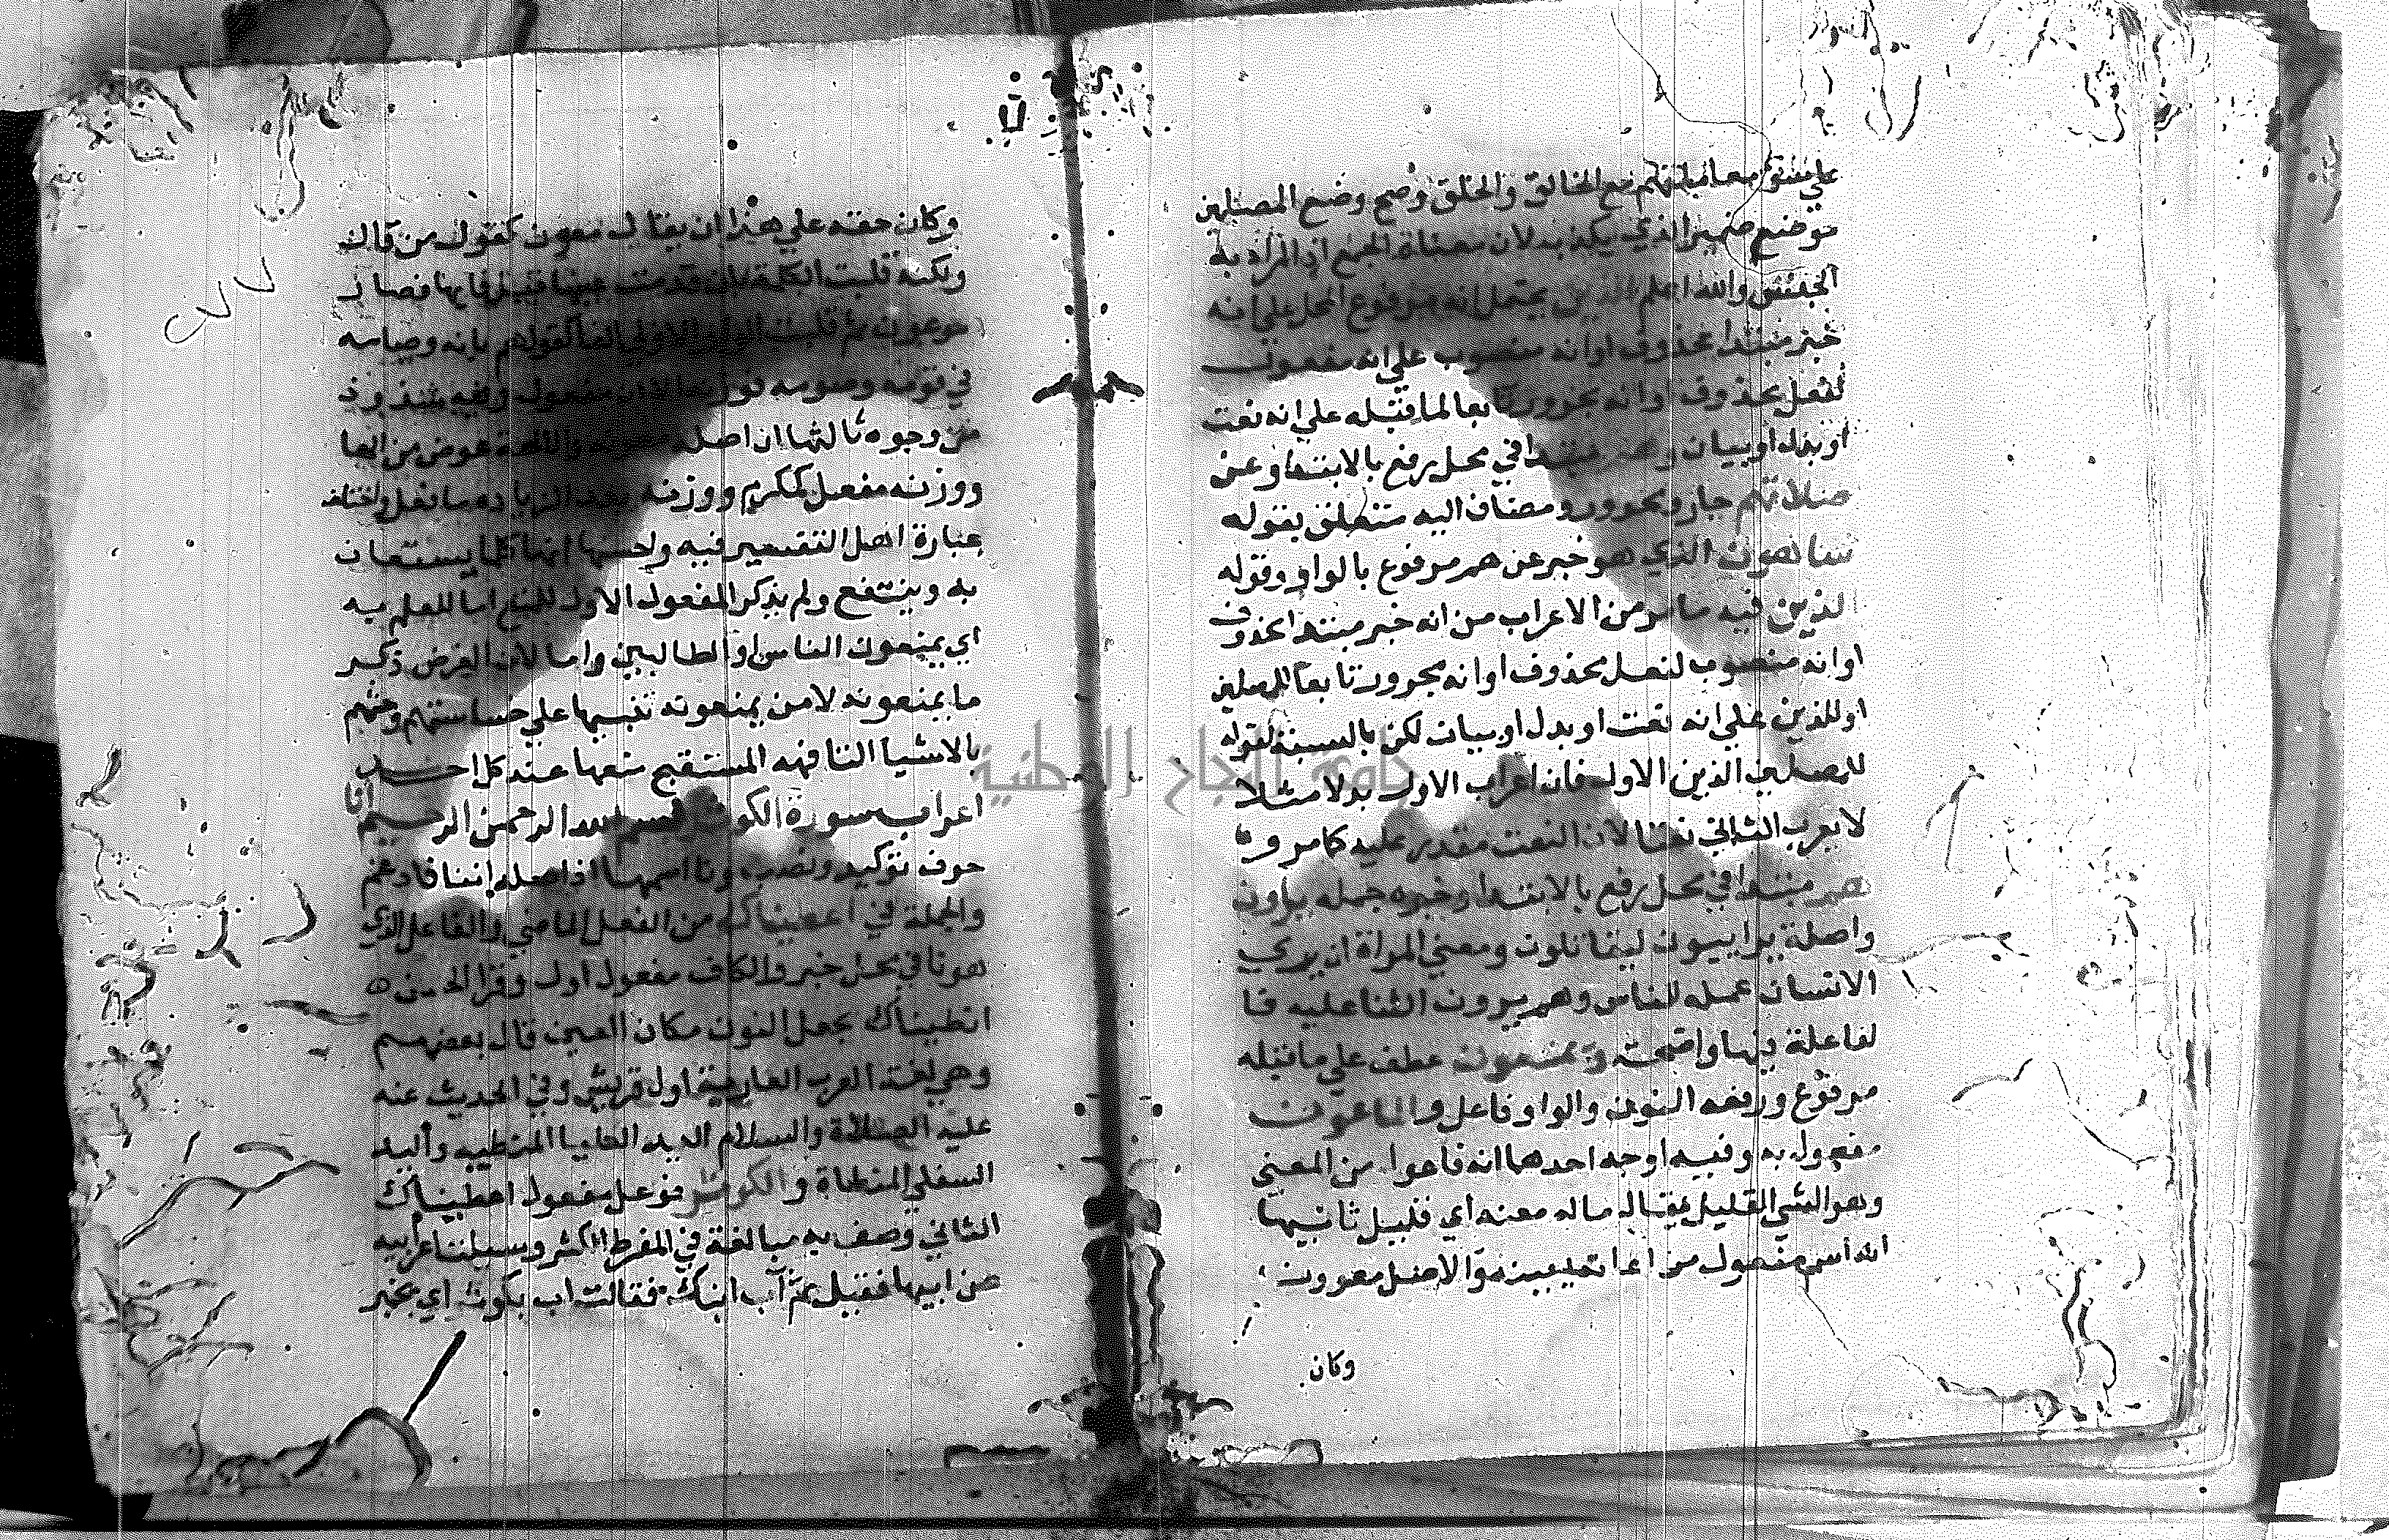 على سوء معاملتهم مع الخالق والخلق وصح وضع المصلين
موضع ضمير الذي يكذب لان معناه الجمع اذ المراد به
الجنس والله اعلم الذين يحتمل انه مرفوع المحل على انه
خبر مبتدا محذوف او انه منصوب على انه مفعول
لفعل محذوف او انه مجرور تابعا لما قبله على انه نعت
او بدل او بيان وهم مبتدا في محل رفع بالابتدا وعن
صلاتهم جار ومجرور ومضاف اليه متعلق بقوله
ساهون الذي هو خبر عن هم مرفوع بالواو وقوله
الذين فيه ما مر من الاعراب من انه خبر مبتدا محذوف
او انه منصوب لفعل محذوف او انه مجرور تابعا للمصلين
او للذين على انه نعت او بدل او بيان لكن بالنسبة لقوله
للمصلين الذين الاول فان اعراب الاول بدلا مثلا
لا يعرب الثاني نعتا لان النعت مقدم عليه كما مر و
هم مبتدا في محل رفع بالابتدا وخبره جمله يراون
واصلة يراييون ليقاتلون ومعنى المراة ان يرى
الانسان عمله للناس وهم يرون الثنا عليه فا
لفاعلة فيها واضحة و يمنعون عطف على ما قبله
مرفوع ورفعه النون والواو فاعل و الماعون
مفعول به وفيه اوجه احدها انه فاعول من المعنى
وهو الشي القليل يقال ماله معنه اي قليل ثانيها
انه اسم مفعول من اعانه يعينه والاصل معوون
وكان
وكان حقه على هذا ان يقال معون كمقول من قال
ولكنه قلبت الكلمة بان قدمت عينها قبل فايها فصار
موعون ثم قلبت الواو الاولى الفا كقولهم يابه وصامه
في توبه وصومه فوزنه الان مفعول وفيه شذوذ
من وجوه ثالثها ان اصله معونه والالف عوض من الها
ووزنه مفعل كمكرم ووزنه بعد الزياده مافعل واختلف
عبارة اهل التفسير فيه واحسنها انها كلما يستعان
به وينتفع ولم يذكر المفعول الاول للمنع اما للعلم به
اي يمنعون الناس او الطالبين واما لان الغرض ذكر
ما يمنعونه لا من يمنعونه تنبيها على خساستهم وضنهم
بالاشيا التافهه المستقبح منعها عند كل احد
اعراب سورة الكوثر بسم الله الرحمن الرحيم انا
حرف توكيد ونصب ونا اسمها اذ اصله اننا فادغم
والجملة في اعطيناك من الفعل الماضي والفاعل الذي
هو نا في محل خبر والكاف مفعول اول وقرا الحسن
انطيناك بجعل النون مكان العين قال بعضهم
وهي لغة العرب العاربة اول قريش وفي الحديث عنه
عليه الصلاة والسلام اليد العليا المنطيه واليد
السفلى المنطاة و الكوثر فوعل مفعول اعطيناك
الثاني وصف به مبالغة في المفرط الكثر وسيلت اعرابيه
عن ابيها فقيل بم آب ابنك فقالت اب بكوثر اي بخير